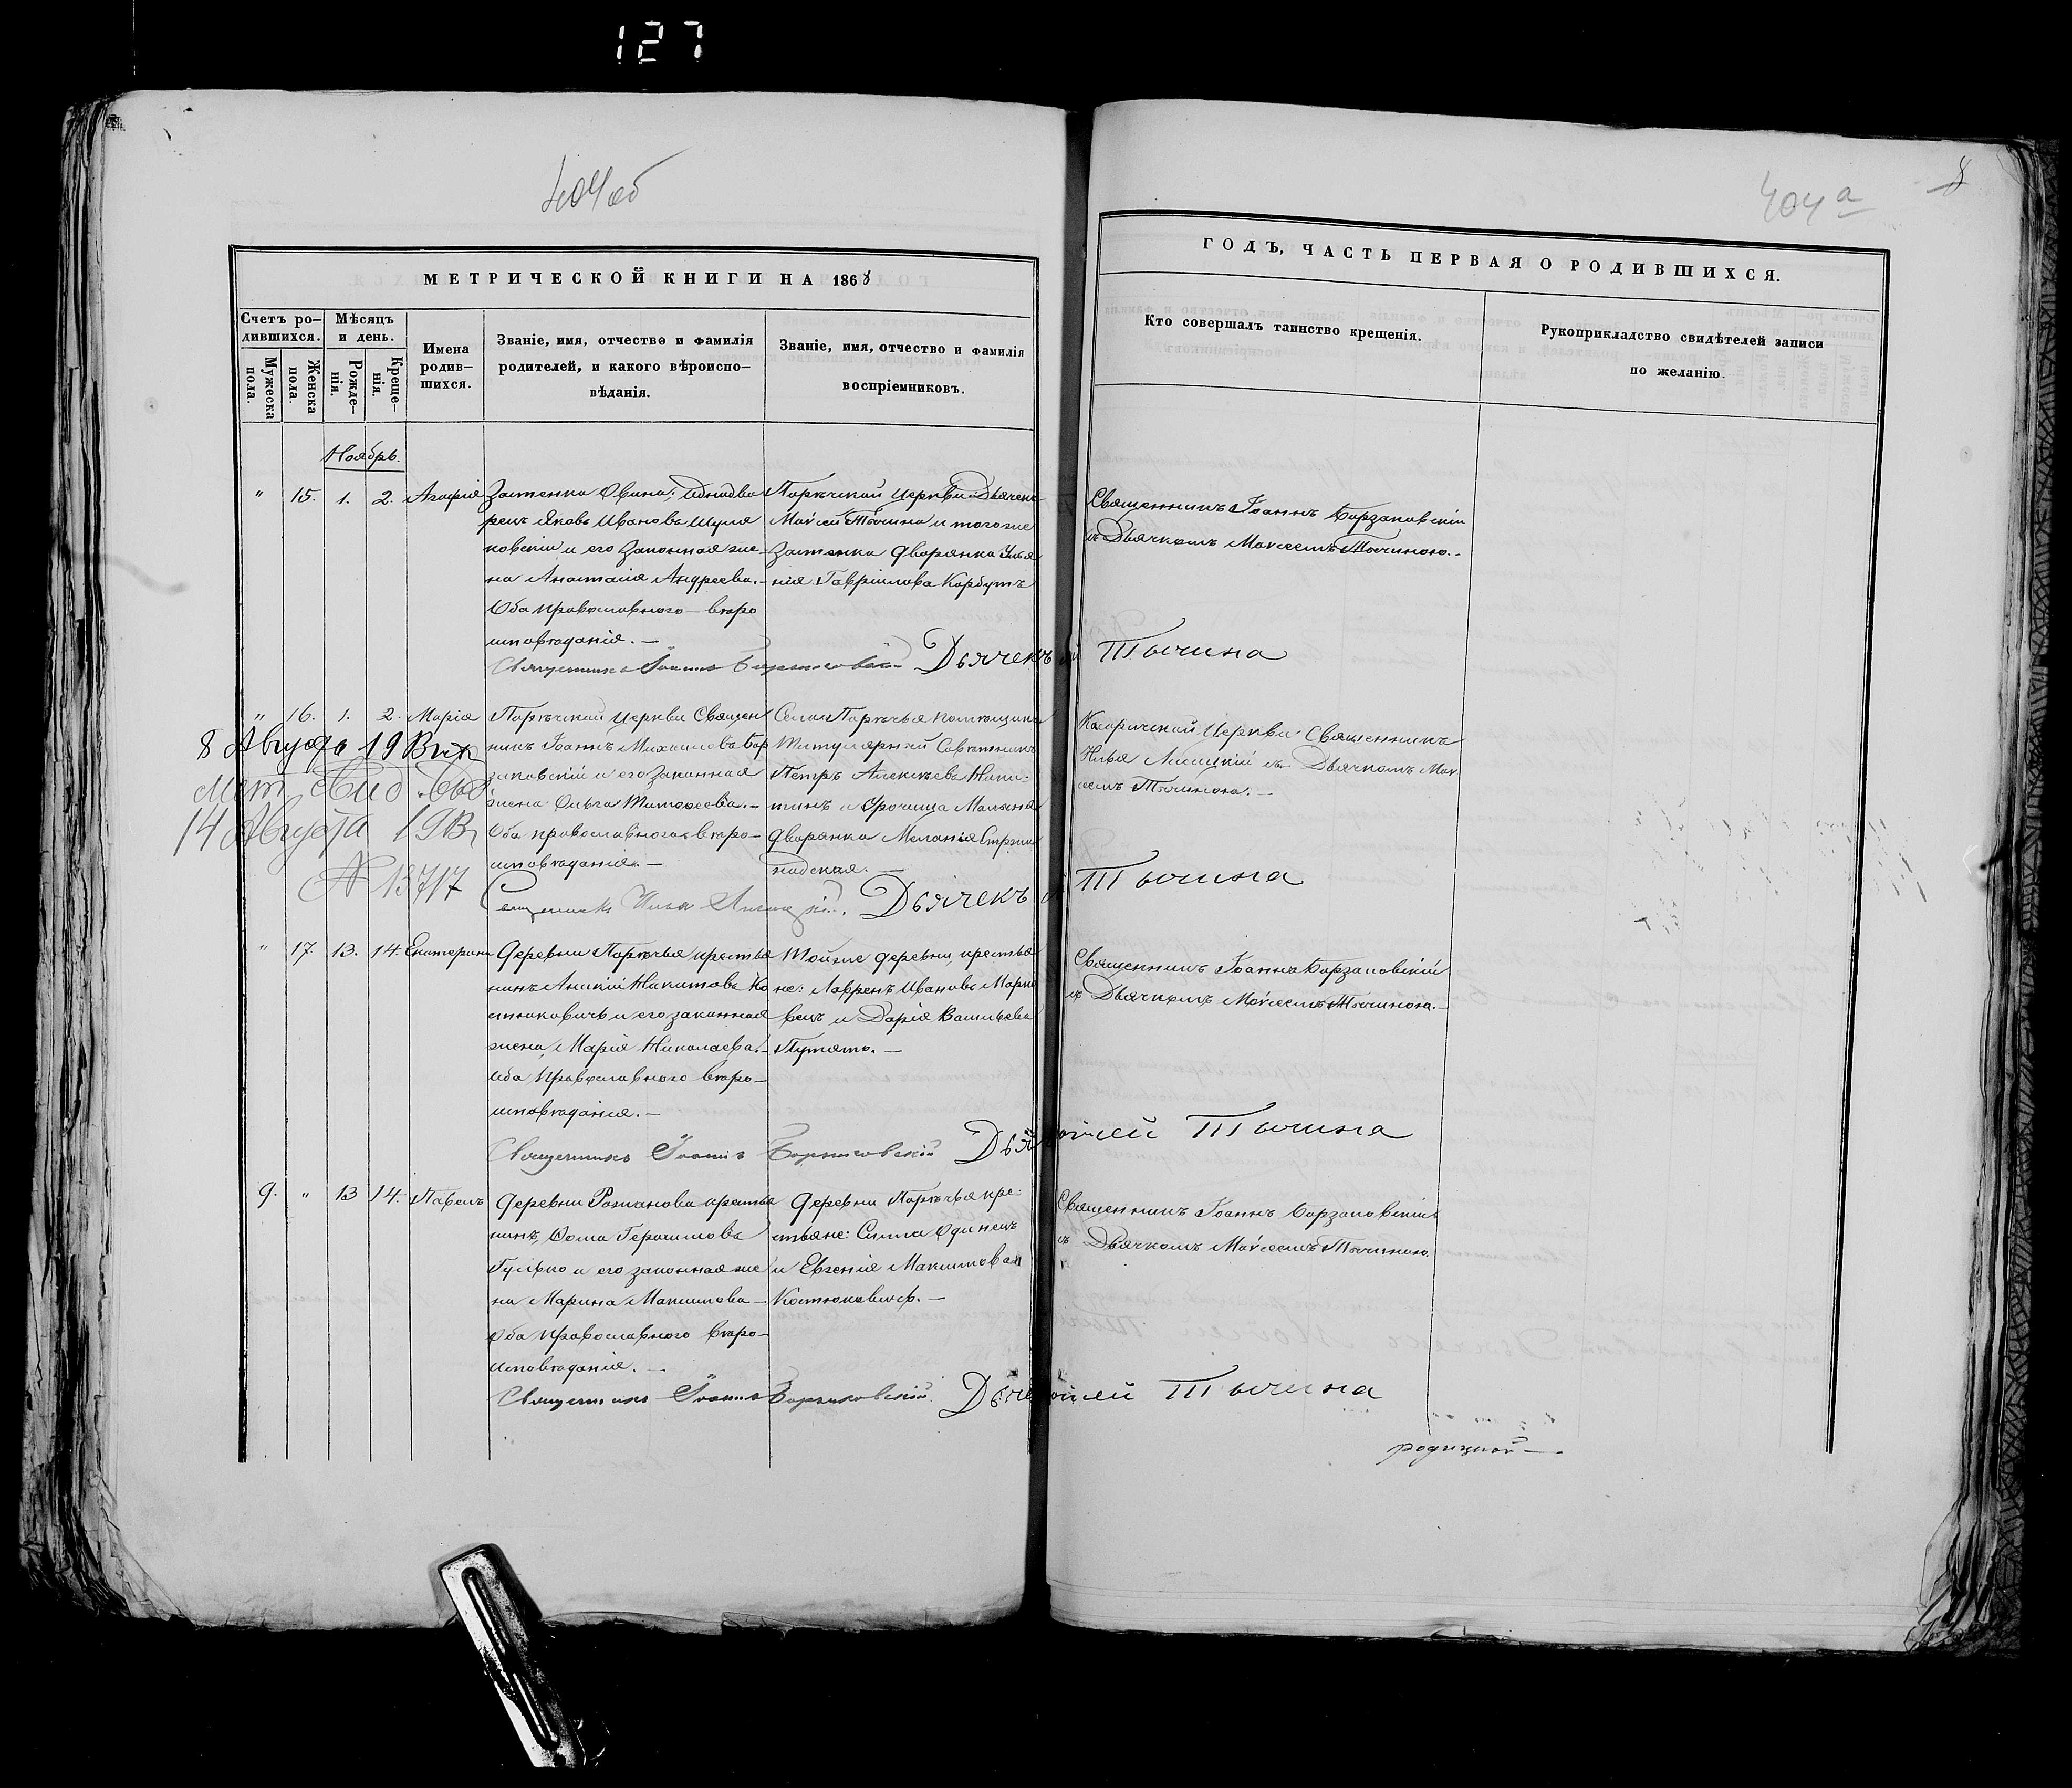 127
404об
404а
8
МЕТРИЧЕСКОЙ КНИГИ НА 1868
ГОДЪ, ЧАСТЬ ПЕРВАЯ О РОДИВШИХСЯ.
Счетъ ро-
дившихся.
Мужеска
пола.
Женска
пола.
Мѣсяцъ
и день.
Рожде-
нія.
Креще-
нія.
Имена
родив-
шихся.
Званіе, имя, отчество и фамилія
родителей, и какого вѣроиспо-
вѣданія.
Званіе, имя, отчество и фамилія
воспріемниковъ.
Кто совершалъ таинство крещенія.
Рукоприкладство свидѣтелей записи
по желанію.
Ноябрь.
" 15. 1. 2. Агафія
Застенка Овина; Однодво
рецъ Яковъ Ивановъ Шуля
ковскій и его законная же-
на Анастасія Андреева.-
Оба православного вѣро
исповѣданія.-
Порѣчской Церкви Дьячекъ
Моѵсей Тычина и тогоже
Застенка дворянка
Гавріилова Корбутъ
Священникъ Іоаннъ Борзаковскій
съ Дьячкомъ Моѵсеемъ Тычиною.-
Священникъ Іоаннъ Борзаковскій Дьячекъ Тычина
" 16. 1. 2. Марія
Порѣчской Церкви Священ
никъ Іоаннъ Михаиловъ Бор
заковскій и его законная
жена Ольга Тимофеева.-
Оба православного вѣро-
исповѣданія.-
Села Порѣчья помѣщикъ
Титулярный Совѣтникъ
Петръ Алексѣевъ Ники-
тинъ и Урочища
дворянка Меланія
Церкви Священникъ
Илья Лисицкій съ Дьячкомъ Моѵ
сеемъ Тычиною.-
8 Августа 19
Мет. Свид.
14 Августа 19
№ 13717
Священникъ Илья Лисицкій. Дьячекъ Тычина
" 17. 13. 14. Екатерина
Деревни Порѣчья крестья
нинъ Аникій Никитовъ Ко
стюковичъ и его законная
жена, Марія Николаева.-
Оба православного вѣро-
исповѣданія.-
Тойже деревни, крестья
не: Лавренъ Ивановъ Марко
вецъ и Дарія Васильева
Путято.-
Священникъ Іоаннъ Борзаковскій
съ Дьячкомъ Моѵсеемъ Тычиною.-
Священникъ Іоаннъ Борзаковскій Дья Моѵсей Тычина
9. " 13 14. Павелъ
Деревни Рожанова крестья
нинъ, Фома Герасимовъ
Гулько и его законная же
на Марина Максимова-
Оба православного вѣро-
исповѣданія.-
Деревни Порѣчья кре-
стьяне: Симонъ Одинецъ
и Евгенія Максимова
Костюковичъ.-
Священникъ Іоаннъ Борзаковскій
съ Дьячкомъ Моѵсеемъ Тычиною
Священникъ Іоаннъ Борзаковскій. Дьяче Моѵсей Тычина